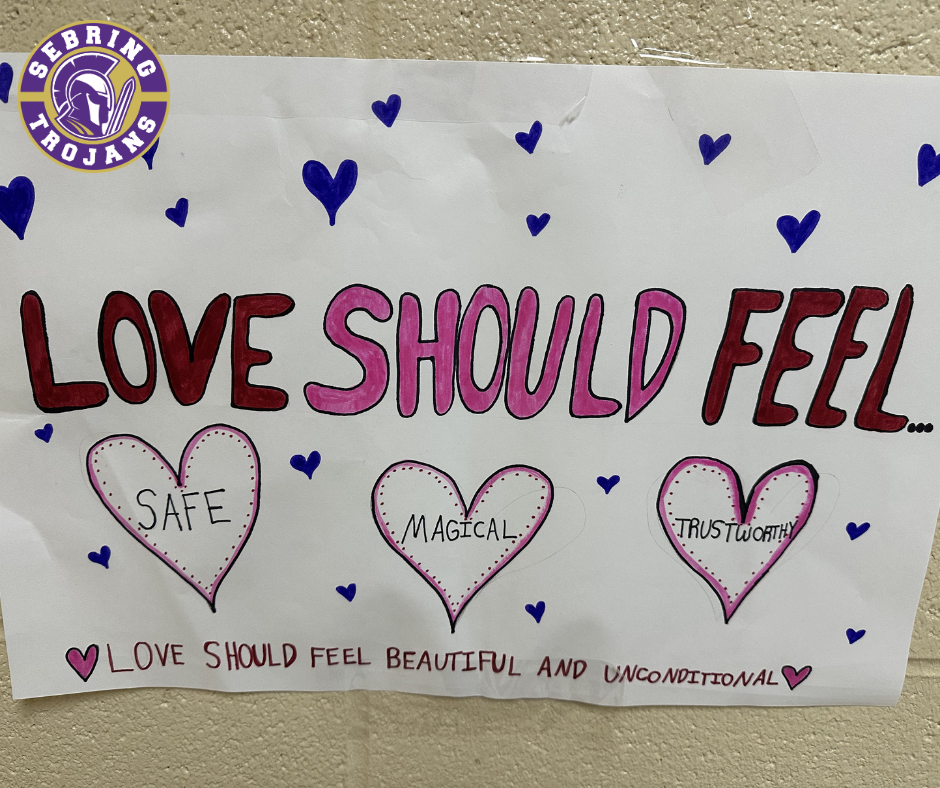 SEBRING
TROJANS
LOVE SHOULD FEEL...
SAFE
MAGICAL
TRUSTWORTHY
LOVE SHOULD FEEL BEAUTIFUL AND UNCONDITIONAL